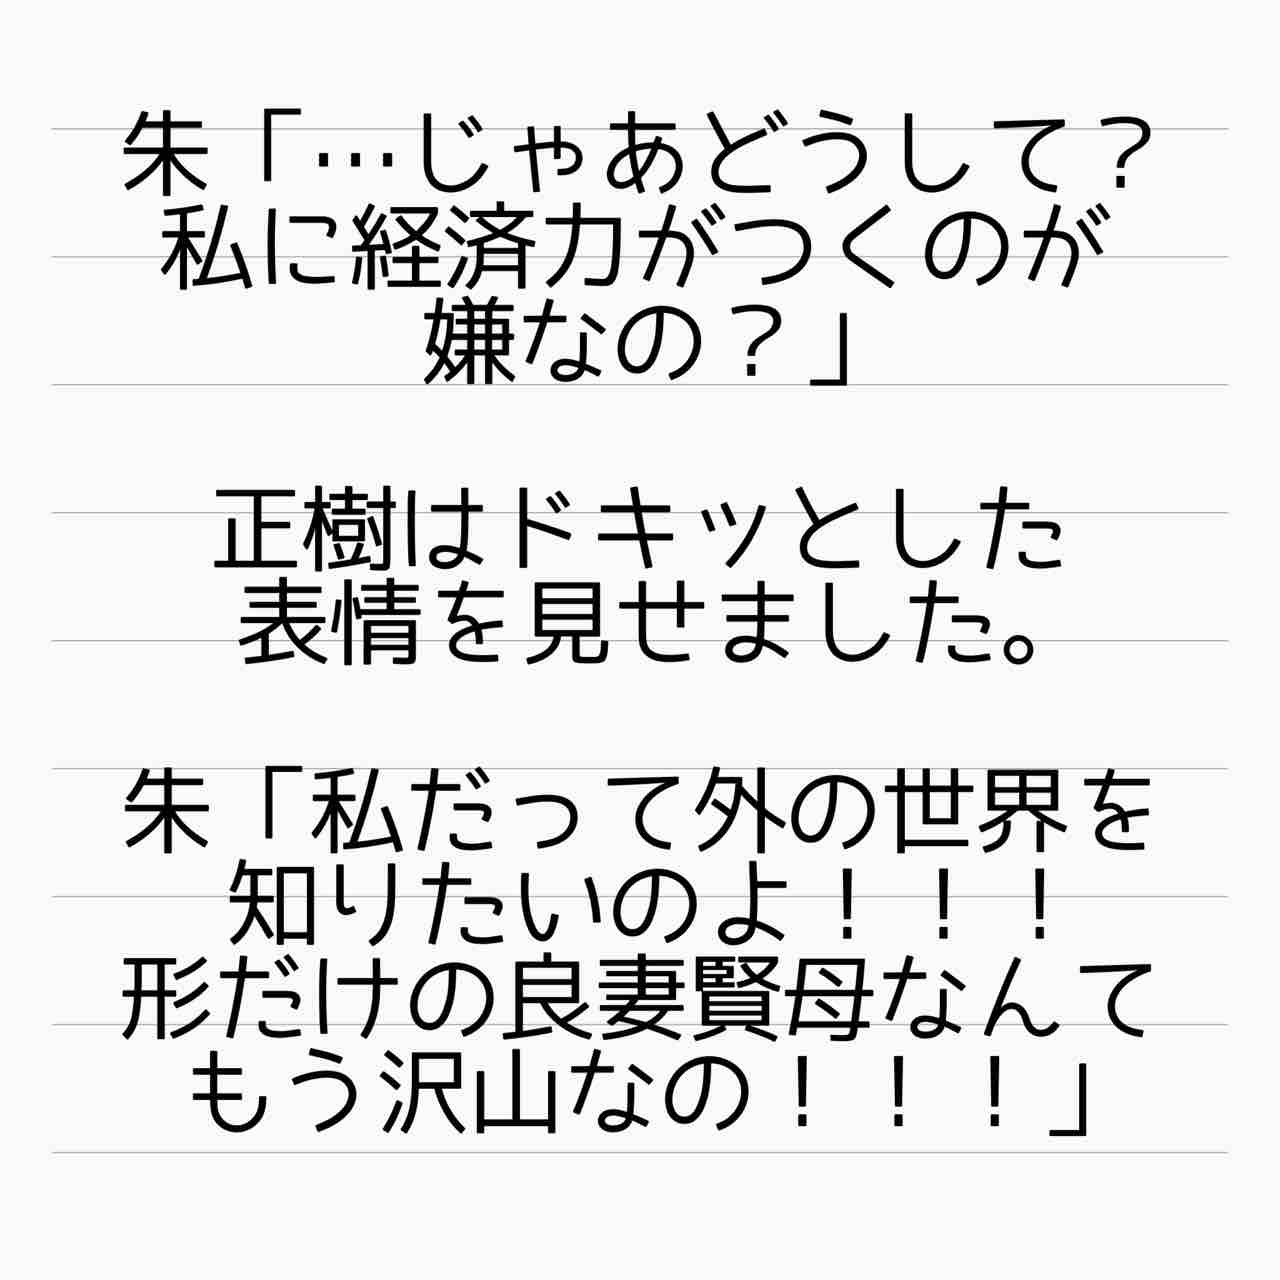 朱「…じゃあどうして？
私に経済力がつくのが
嫌なの？」
正樹はドキッとした
表情を見せました。
朱「私だって外の世界を
知りたいのよ！！！
形だけの良妻賢母なんて
もう沢山なの！！！」